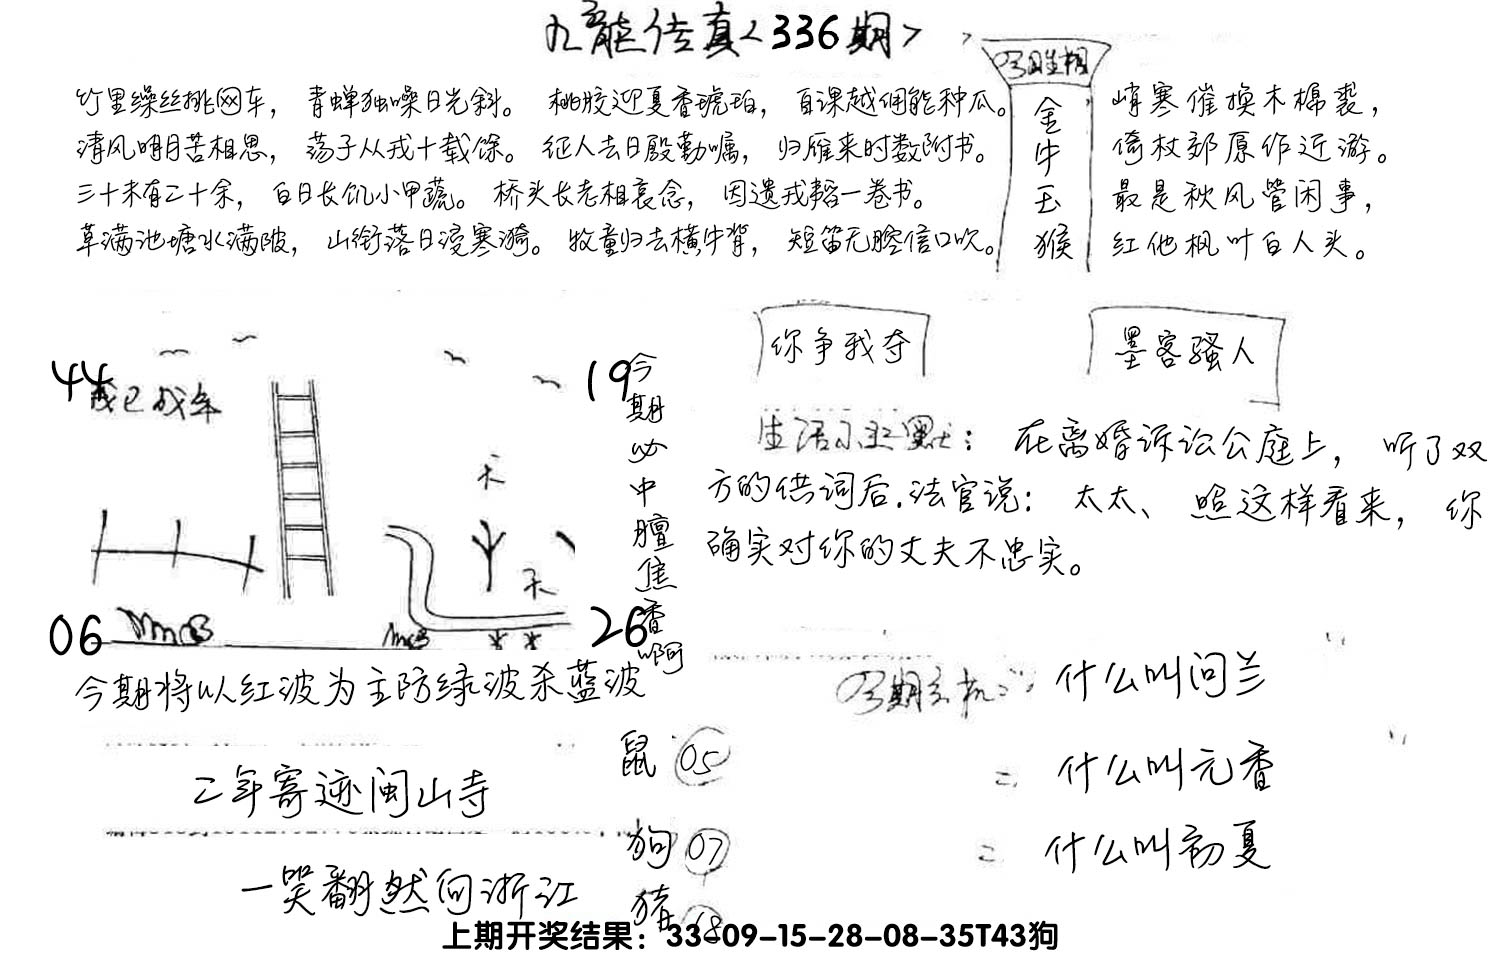 九龙传真<336期>
竹里缲丝挑网车，青蝉独噪日光斜。桃胶迎夏香琥珀，自课越佣能种瓜。
清风明月苦相思，荡子从戎十载馀。征人去日殷勤嘱，归雁来时数附书。
三十未有二十余，白日长饥小甲蔬。桥头长老相哀念，因遗戎韬一卷书。
草满池塘水满陂，山衔落日浸寒漪。牧童归去横牛背，短笛无腔信口吹。
金牛玉猴
峭寒催换木棉裘，
倚杖郊原作近游。
最是秋风管闲事，
红他枫叶白人头。
你争我夺
墨客骚人
44
19
06
26
天
天
今期必中膻焦香啊
今期将以红波为主防绿波杀蓝波
生活幽默：在离婚诉讼公庭上，听了双
方的供词后.法官说：太太、照这样看来，你
确实对你的丈夫不忠实。
今期玄机：什么叫问兰
=什么叫元香
=什么叫初夏
二年寄迹闽山寺
一笑翻然向浙江
鼠 05
狗 07
猪 18
上期开奖结果：33-09-15-28-08-35T43狗